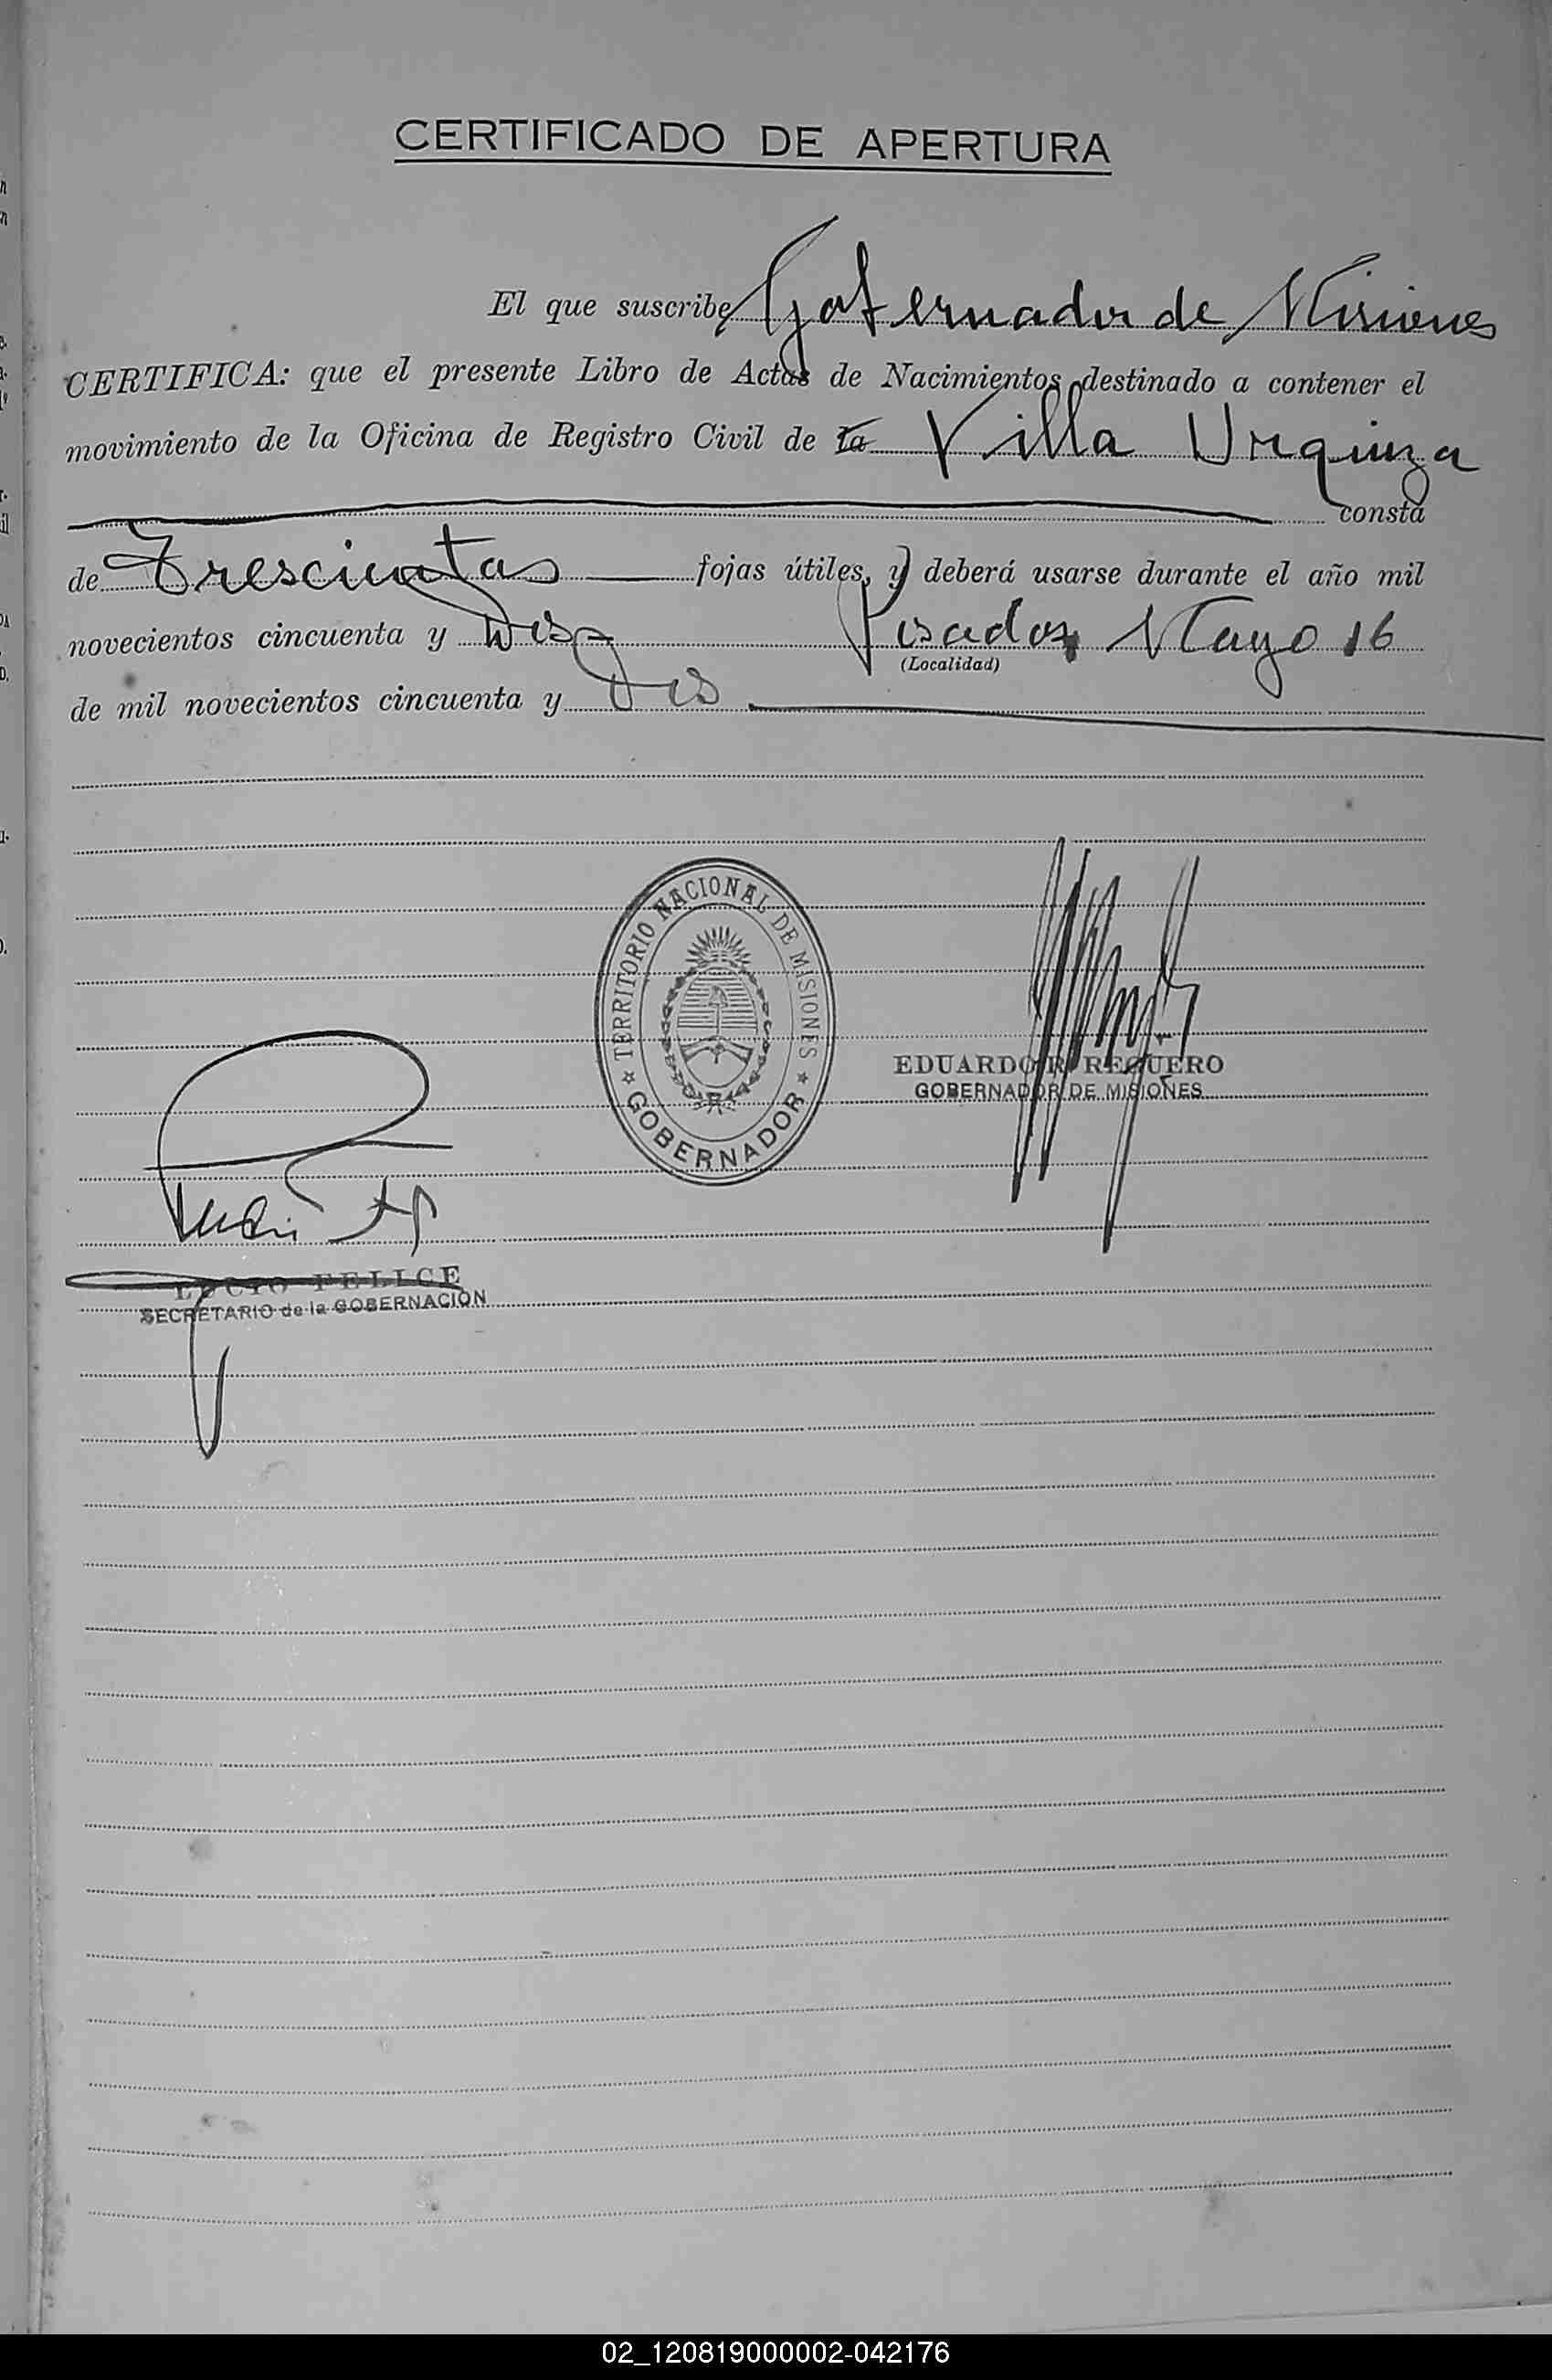 CERTIFICADO DE APERTURA
El que suscribe Gobernador de Misiones
CERTIFICA: que el presente Libro de Actas de Nacimientos destinado a contener el
movimiento de la Oficina de Registro Civil de la Villa Urquiza
consta
de Trescientas fojas útiles, y deberá usarse durante el año mil
novecientos cincuenta y Dos Posadas, Mayo 16
(Localidad)
de mil novecientos cincuenta y Dos
TERRITORIO NACIONAL DE MISIONES
GOBERNADOR
EDUARDO R. REQUERO
GOBERNADOR DE MISIONES
LUCIO FELICE
SECRETARIO de la GOBERNACIÓN
02_120819000002-042176